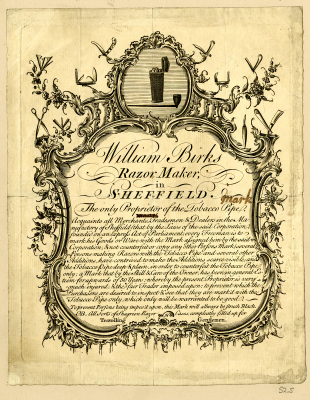 William Birks
Razor Maker,
in
SHEFFIELD.
The only Proprietor of the Tobacco Pipe
Mark
Acquaints all Merchants, Tradesmen & Dealers in the Ma-
nufactory of Sheffield, that by the Laws of the said Corporation,
founded on an Express Act of Parliament, every Freeman is to
mark his Goods or Ware with the Mark assigned him by the said
Corporation. None counterfeit or use any other Persons Mark, yet
Persons making Razors with the Tobacco Pipe and several other
additions, have contrived to make the additions
the Tobacco Pipe deep & plain, in order to counterfeit the Tobacco Pipe
only, a Mark that by the Skill & Care of the Owner, has been in general Esti-
mation for upwards of Years; whereby the present Proprietor is very
much injured, & the fair Trader imposed upon; to prevent which the
Merchants are desired to inspect & see that they are mark'd with the
Tobacco Pipe only, which only will be warranted to be good.
To prevent Persons being imposed upon, the Mark will always be struck
NB. All Sorts of Shagreen Razor Cases compleatly fitted up for
Travelling Gentlemen.